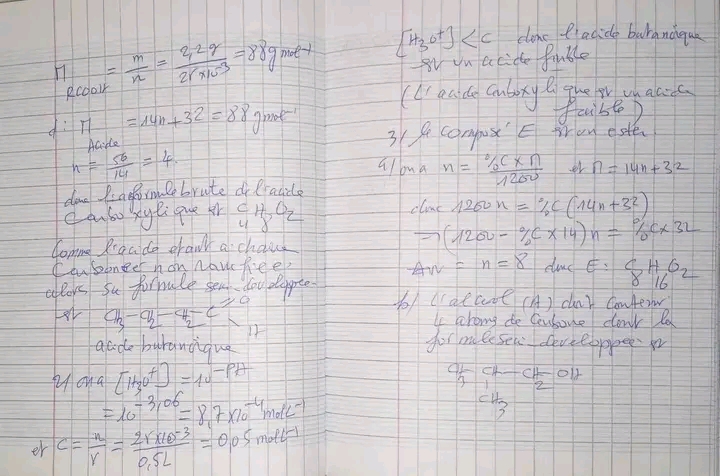 M = m/n = 2,2g / 25×10⁻³ = 88g mol⁻¹
RCOOH
d': M = 14n+32 = 88g mol⁻¹
Acide
n = 56/14 = 4.
donc la formule brute de l'acide
Carboxylique est C₄H₈O₂
Comme l'acide étant à chaine
Carbonée non ramifiée.
alors sa formule semi-developpée
est CH₃-CH₂-CH₂-C
O
acide butanoïque
2/ on a [H₃O⁺] = 10⁻ᵖᴴ
= 10⁻³,⁰⁶ = 8,7×10⁻⁴ mol L⁻¹
et C = n/V = 25×10⁻³ / 0,5L = 0,05 mol L⁻¹
[H₃O⁺] < C donc l'acide butanoïque
est un acide faible
(L'acide carboxylique est un acide
faible)
3/ le composé E est un ester.
a/ on a n = %C×M / 1200 et M = 14n+32
donc 1200n = %C(14n+32)
→ (1200 - %C×14)n = %C×32
= n = 8 donc E: C₈H₁₆O₂
b/ L'alcool (A) doit contenir
4 atoms de carbone dont la
formule semi-developpée est
CH₃-CH-CH₂-OH
CH₃